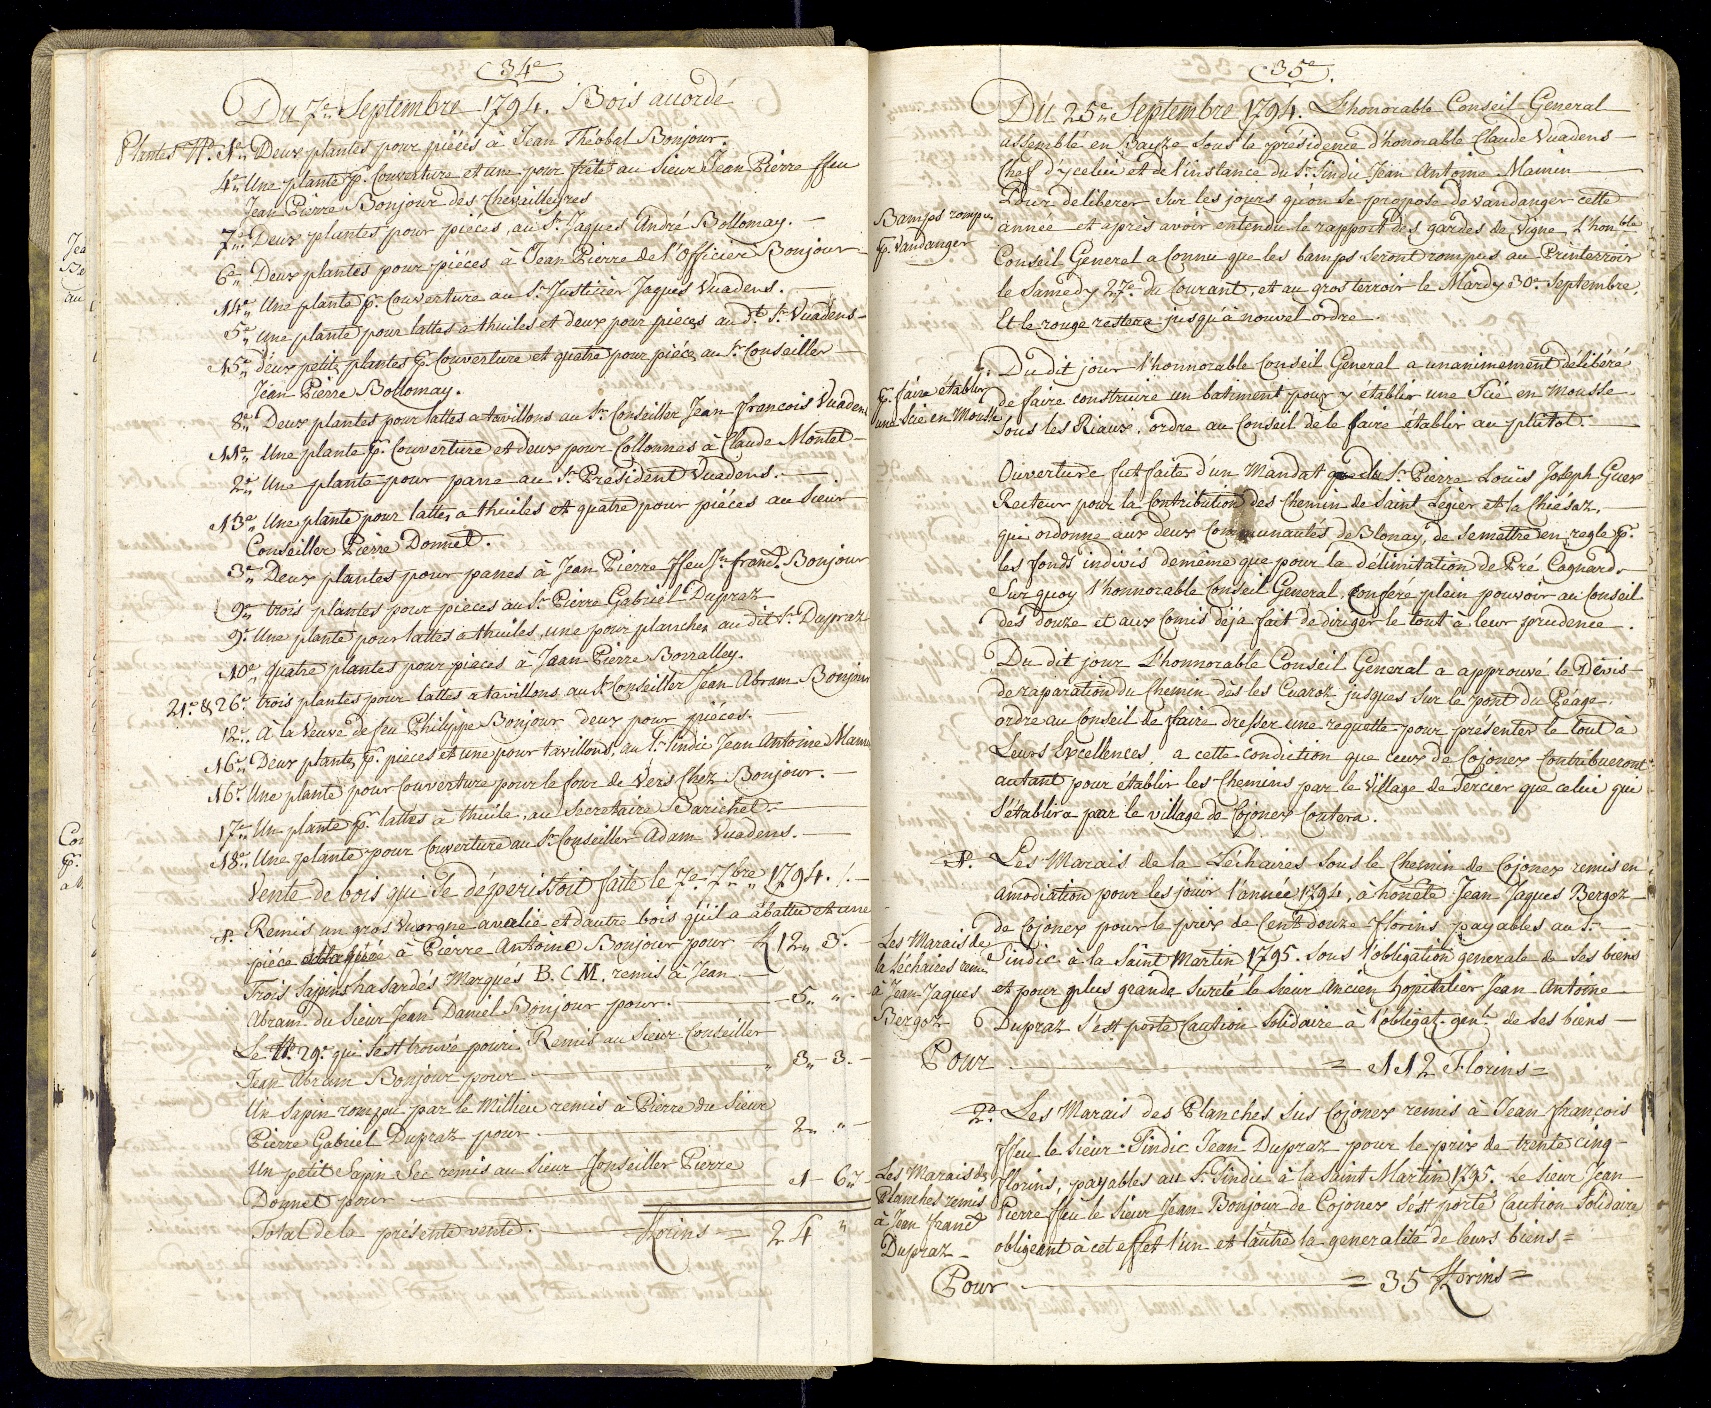 34e
Du 7e Septembre 1794. Bois accordé
Plantes No. 1e Deux plantes pour piéces à Jean Théobel Bonjour.
4e Une plante pr. Couverture et une pour frête au Sieur Jean Pierre ffeu
Jean Pierre Bonjour des Chevalleyres
7e Deux plantes pour piéces, au Sr. Jaques André Bollomay.
6e Deux plantes pour piéces à Jean Pierre de l'Officier Bonjour
14e Une plante pr. Couverture au Sr. Justicier Jaques Vuadens.
5e Une plante pour lattes a thuiles et deux pour pieces au dt. Sr. Vuadens
15e deux petits plantes pr. Couverture et quatre pour piéces au Sr. Conseiller
Jean Pierre Bollomay.
8e Deux plantes pour lattes a tavillons au Sr. Conseiller Jean francois Vuadens
11e Une plante pr. Couverture et deux pour Collonnes à Claude Montet
2e Une plante pour pane au Sr. President Vuadens.
13e Une plante pour lattes a thuiles et quatre pour piéces au Sieur
Conseiller Pierre Donnet.
3e Deux plantes pour panes à Jean Pierre ffeu Jn. francs. Bonjour
9e trois plantes pour pieces au Sr. Pierre Gabriel Dupraz
9e Une plante pour lattes a thuiles, une pour planches au dit Sr. Dupraz
10e quatre plantes pour pieces à Jean Pierre Borralley.
21e & 26e trois plantes pour lattes a tavillons au Sr. Conseiller Jean Abram Bonjour
12e À la Veuve de feu Philippe Bonjour deux pour piéces.
16e Deux plantes pr. pieces et une pour tavillons, au Sr. Sindic Jean Antoine Mamin
16e Une plante pour Couverture pour le four de Vers Chez Bonjour.
17e Un plante pr. lattes à thuile, au Secretaire Barichet.
18e Une plante pour Couverture au Sr. Conseiller Adam Vuadens.
Vente de bois qui se déperissoit faite le 7e 7bre 1794.
1o. Remis un gros Vuorgne avalié et dautre bois qu'il a abattu et une
piéce à Pierre Antoine Bonjour pour fl 12 „ 3.
Trois sapins hasardés Marqués B. C. M. remis à Jean
Abram du Sieur Jean Daniel Bonjour pour. 5 „ „
Le No. 29e qui s'est trouvé pouri Remis au Sieur Conseiller
Jean Abram Bonjour pour 3 „ 3.
Un Sapin rompu par le Millieu remis à Pierre du Sieur
Pierre Gabriel Dupraz pour 2 „ „
Un petit Sapin Sec remis au Sieur Conseiller Pierre
Donnet pour 1 - 6
Total de la présente vente. florins = 24 „
35e.
Du 25e Septembre 1794. L'honorable Conseil General
assemblé en Bayze sous la présidence d'honorable Claude Vuadens
Chef d'ycelui et de l'instance du Sr. Sindic Jean Antoine Mamin
Pour déliberer sur les jours qu'on se propose de vandanger cette
Bamps rompus
pr. Vandanger
année et après avoir entendu le rapport des gardes de vigne, L'honble.
Conseil General a Connu que les bamps seront rompus au Printerroir
le Samedy 27e du Courant, et au gros terroir le Mardy 30e Septembre,
Et le rouge restera jusqu'à nouvel ordre.
pr. faire établir
une Scie en Mousse
Du dit jour l'honnorable Conseil General a unanimement délibéré
de faire construire un batiment pour y établir une Scie en Mousse
sous les Riaux, ordre au Conseil de le faire établir au plutot.
Ouverture fut faite d'un Mandat du Sr. Pierre Louïs Joseph Guex
Recteur pour la Contribution des Chemin de Saint Legier et la Chiésaz,
qui ordonne aux deux Communautés de Blonay, de se mettre en regle pr.
les fonds indivis de même que pour la délimitation de Pré Cagnard.
Sur quoy l'honnorable Conseil General, conféré plein pouvoir au Conseil
des douze et aux Comis déjà fait de diriger le tout à leur prudence.
Du dit jour L'honnorable Conseil General a approuvé le Devis
de raparation du Chemin dès les Cuaroz jusques sur le pont du Péage.
ordre au Conseil de faire dresser une requette pour présenter le tout à
Leurs Excellences, a cette condiction que ceux de Cojonex Contribueront
autant pour établir les Chemins par le Village de Tercier que celui qui
s'établira par le village de Cojonex Coutera.
1o. Les Marais de la Léchaires sous le Chemin de Cojonex remis en
Amodiation pour les jouïr l'année 1794, a honête Jean Jaques Bergoz
de Cojonex pour le prix de Cent douze florins payables au Sr.
Les Marais de
la Léchaires remis
à Jean Jaques
Bergoz
Sindic à la Saint Martin 1795. Sous l'obligation generale de ses biens
et pour plus grande sureté le Sieur Ancien hopitalier Jean Antoine
Dupraz s'est porté Caution Solidaire à l'obligat. genle. de ses biens
Pour = 112 Florins =
2o. Les Marais des Planches Sus Cojonex remis à Jean francois
ffeu le Sieur Sindic Jean Dupraz pour le prix de trente cinq
Les Marais des
Planches remis
à Jean francs.
Dupraz
florins, payables au Sr. Sindic à la Saint Martin 1795. Le Sieur Jean
Pierre ffeu le Sieur Jean Bonjour de Cojonex s'est porté Caution Solidaire
obligeant à cet effet l'un et l'autre la generalité de leurs biens =
Pour = 35 florins =